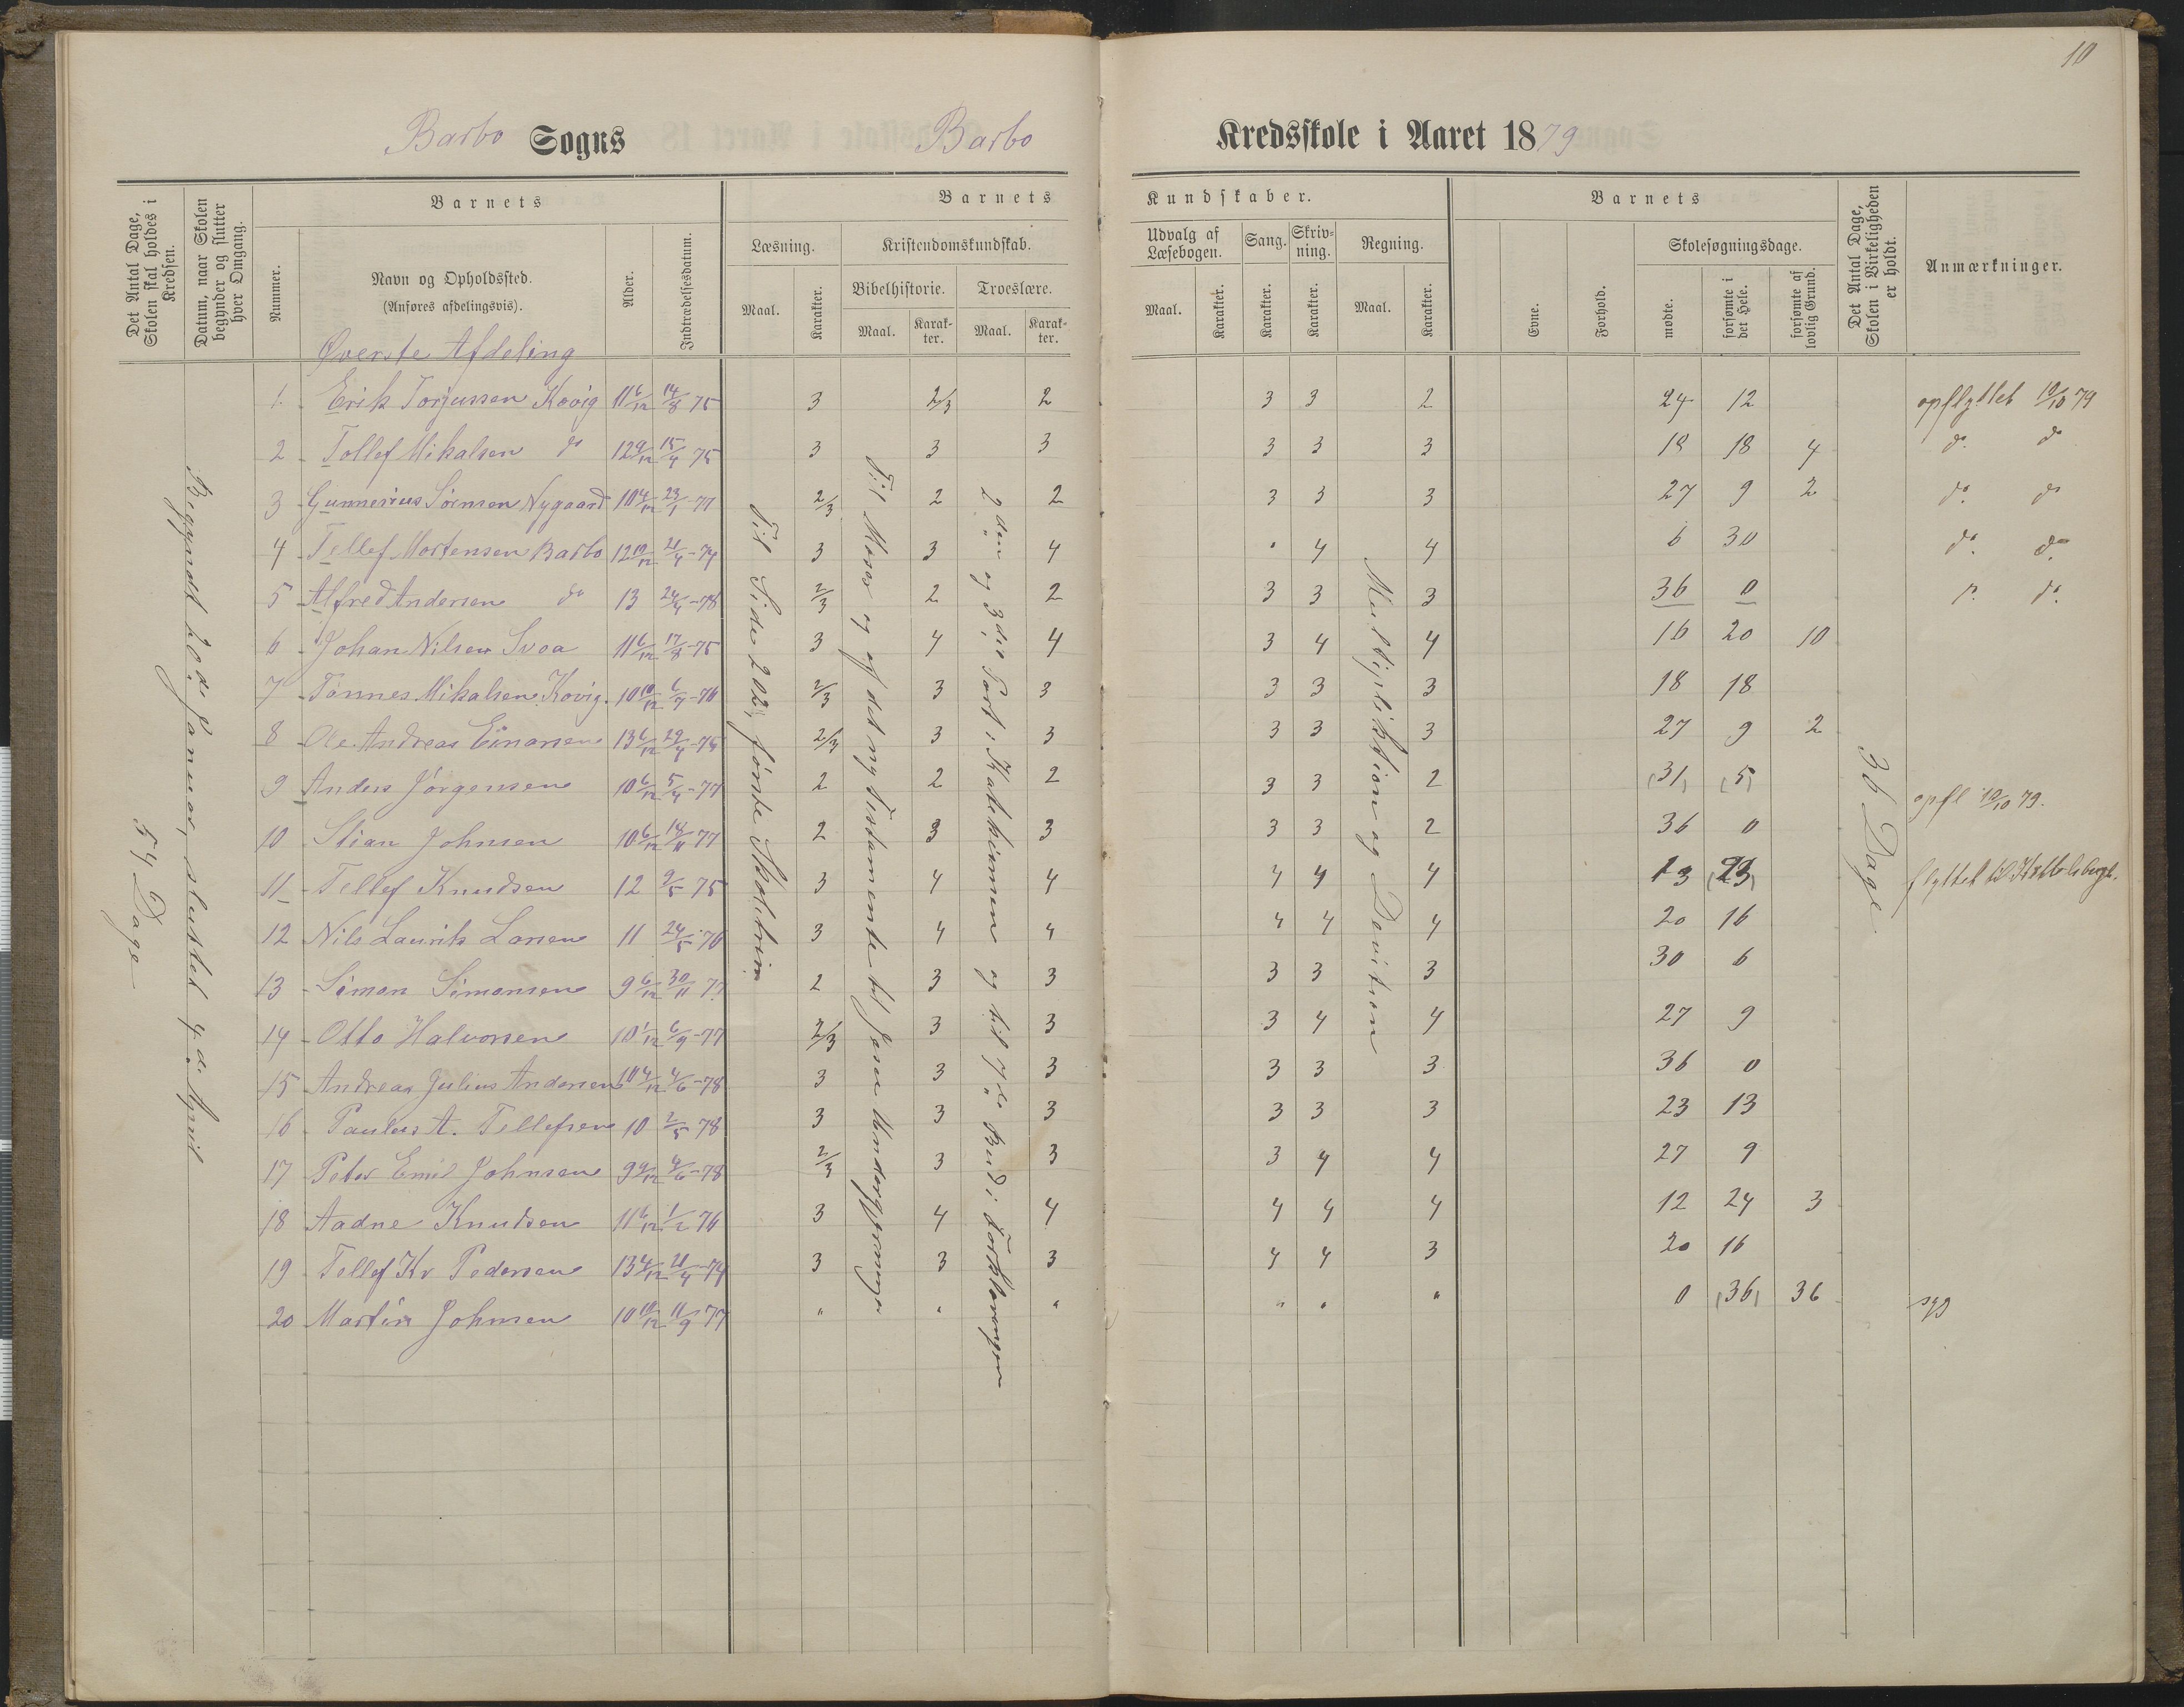 10
Barbo Sogns Barbo Kredsskole i Aaret 1879
Det Antal Dage, Skolen skal holdes i Kredsen.
Datum, naar Skolen begynder og slutter hver Omgang.
Nummer.
Barnets
Navn og Opholdssted.
(Anføres afdelingsvis).
Alder.
Indtrædelsesdatum.
Barnets Kundskaber.
Læsning.
Maal.
Karakter.
Kristendomskundskab.
Bibelhistorie.
Maal.
Karakter.
Troeslære.
Maal.
Karakter.
Udvalg af Læsebogen.
Maal.
Karakter.
Sang.
Karakter.
Skrivning.
Karakter.
Regning.
Maal.
Karakter.
Barnets
Evne.
Forhold.
Skolesøgningsdage.
mødte.
forsømte i det Hele.
forsømte af lovlig Grund.
Det Antal Dage, Skolen i Virkeligheden er holdt.
Anmærkninger.
Øverste Afdeling
1 Erik Torjussen Kovig 11 6/12 14/8 75 3 2/3 2 3 3 2 24 12 opflyttet 10/10 79
2 Tollef Mikalsen do 12 9/12 15/4 75 3 3 3 3 3 3 18 18 4 do do
3 Gunnerius Sørensen Nygaard 10 4/12 23/1 -77 2/3 2 2 3 3 3 27 9 2 do do
4 Tellef Mortensen Barbo 12 10/12 21/4 -74 3 3 4 " 4 4 6 30 do do
5 Alfred Andersen do 13 24/4 -78 2/3 2 2 3 3 3 36 0 do
6 Johan Nilsen Svoa 11 6/12 17/8 -75 3 4 4 3 4 4 16 20 10
7 Tønnes Mikalsen Kovig. 10 10/12 6/7 -76 2/3 3 3 3 3 3 18 18
8 Ole Andreas Einarsen 13 6/12 29/4 -75 2/3 3 3 3 3 3 27 9 2
9 Anders Jørgensen 10 6/12 5/4 -77 2 2 2 3 3 2 (31) (5) opfl 10/10 79.
10 Stian Johnsen 10 6/12 18/11 77 2 3 3 3 3 2 36 0
11 Tellef Knudsen 12 9/5 75 3 4 4 4 4 4 13 (23) flyttet til
12 Nils Laurits Larsen 11 24/5 -76 3 4 4 4 4 4 20 16
13 Simon Simonsen 9 6/12 30/11 77 2 3 3 3 3 3 30 6
14 Otto Halvorsen 10 1/12 6/9 -77 2/3 3 3 3 4 4 27 9
15 Andreas Julius Andersen 10 4/12 4/6 -78 3 3 3 3 3 3 36 0
16 Paulus A. Tellefsen 10 2/5 78 3 3 3 3 3 3 23 13
17 Peter Emil Johnsen 9 9/12 4/6 -78 2/3 3 3 3 4 4 27 9
18 Aadne Knudsen 11 6/12 1/2 76 3 4 4 4 4 4 12 24 3
19 Tellef Kr Pedersen 13 4/12 21/4 -74 3 3 3 4 4 3 20 16
20 Martin Johnsen 10 10/12 11/9 77 " " " " " " 0 (36) 36 syg
54 Dage
Begyndt 20de Januar, sluttet 4de April
Til Side 202, første Skoletrin
Til Moses og af det ny Testamente til Jesu Undergjerninger
2den og 3die Part i Katekismen og til 7de Bud i Forklaringen
Multiplikation og Devition
36 Dage